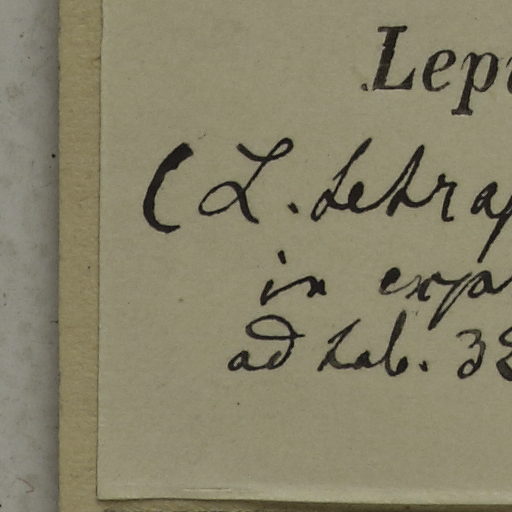 Lepi
(L. tetrap
in exp
ad tab. 32